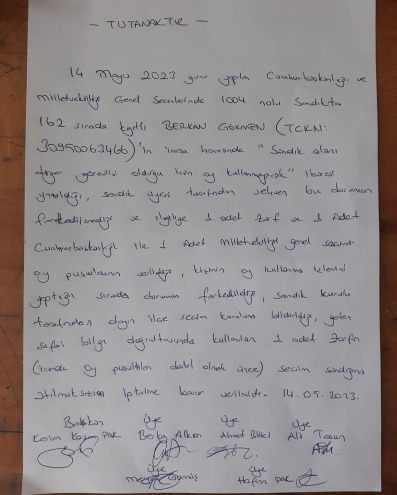 - TUTANAKTIR -
14 Mayıs 2023 günü yapılan Cumhurbaşkanlığı ve
Milletvekilliği Genel Seçimlerinde 1004 nolu Sandıkta
162 sırada kayıtlı BERKAN GÖKMEN (TCKN:
30950063466)'in imza hanesinde "Sandık alanı
diğer görevlisi olduğu için oy kullanmayacak" ibaresi
yazıldığı, sandık üyesi tarafından sehven bu durumun
farkedilmediği ve ilgiliye 1 adet zarf ve 1 Adet
Cumhurbaşkanlığı ile 1 Adet Milletvekilliği genel seçimi
oy pusulasının verildiği, kişinin oy kullanma işlemini
yaptığı sırada durumun farkedildiği, sandık kurulu
tarafından ilçe seçim kuruluna bildirildiği, gelen
şifai bilgi doğrultusunda kullanılan 1 adet zarfın
(içinde oy pusulaları dahil olmak üzere) seçim sandığına
atılmaksızın iptaline karar verilmiştir. 14.05.2023.
Başkan Üye Üye Üye
Kerim PAK Berkay Alkan Ahmet Ali
Üye Üye
PAK